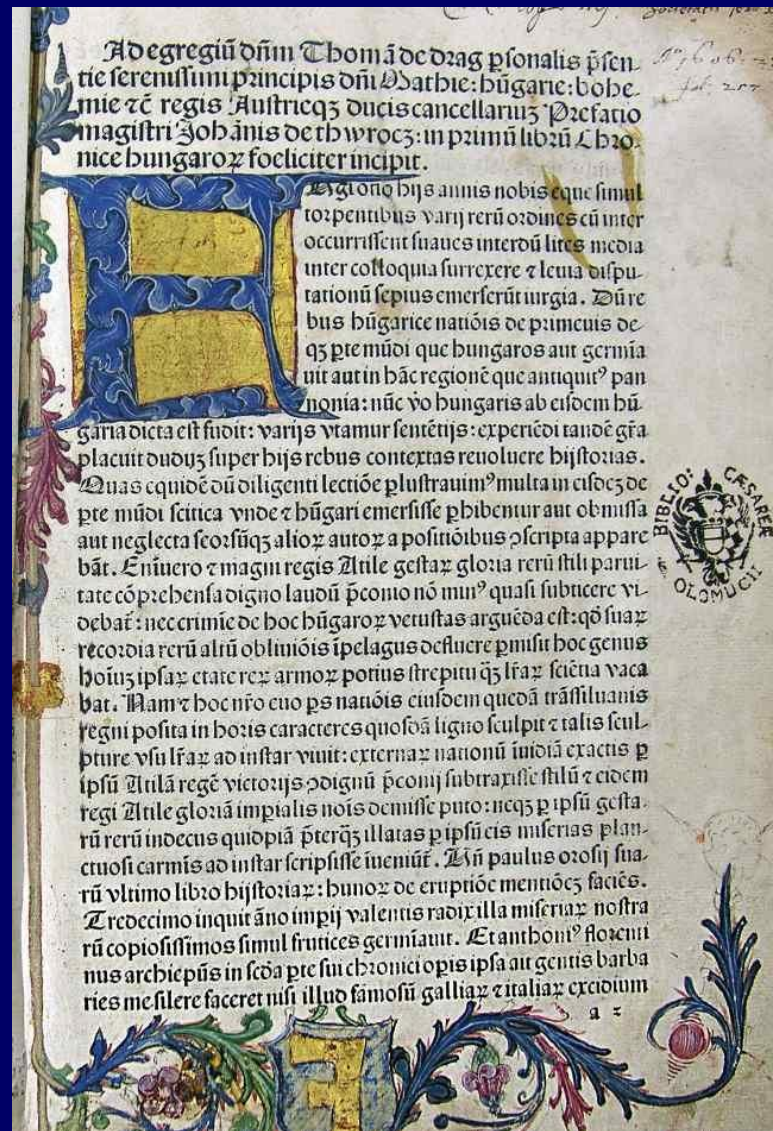 Ad egregiū dn̄m Thomā de drag ꝑsonalis p̄sen-
tie serenissimi principis dn̄i Mathie: hūgarie: bohe-
mie ⁊c̄ regis Austrieqȝ ducis cancellariuȝ Prefatio
magistri Johānis de thwrocȝ: in primū librū Chro-
nice hungaroꝝ foeliciter incipit.
torpentibus varij rerū ordines cū inter
occurrissent suaues interdū lites media
inter colloquia surrexere ⁊ leuia dispu-
tationū sepius emerserūt iurgia. Dū re
bus hūgarice natiōis de primeuis de-
qȝ ꝑte mūdi que hungaros aut germia
uit aut in hāc regionē que antiquitꝰ pan
nonia: nūc vō hungaris ab eisdem hū-
garia dicta est fudit: varijs vtamur sentētijs: experiēdi tandē gr̄a
placuit duduȝ super hijs rebus contextas reuoluere hijstorias.
Quas equidē dū diligenti lectiōe ꝑlustrauimꝰ multa in eisdeȝ de
ꝑte mūdi scitica vnde ⁊ hūgari emersisse ꝑhibentur aut obmissa
aut neglecta seorsūqȝ alioꝝ autoꝝ a positiōibus ꝯscripta appare
bāt. Enīuero ⁊ magni regis Atile gestaꝝ gloria rerū stili parui-
tate cōprehensa digno laudū p̄conio nō minꝰ quasi subticere vi-
debat̄: nec crimīe de hoc hūgaroꝝ vetustas arguēda est: qđ suaꝝ
recordia rerū altū obliuiōis īpelagus defluere ꝑmisit hoc genus
hoīuȝ ipsaꝝ etate reꝝ armoꝝ potius strepitu qȝ lr̄aꝝ sciētia vaca
bat. Nam ⁊ hoc nr̄o euo ꝑs natiōis eiusdem quedā trāssiluanis
regni posita in horis caracteres quosdā ligno sculpit ⁊ talis scul-
pture vsu lr̄aꝝ ad instar viuit: externaꝝ nationū īuidiā exactis ꝑ
ipsū Atilā regē victorijs ꝯdignū p̄conij subtraxisse stilū ⁊ eidem
regi Atile gloriā imꝑialis nois demisse puto: neqȝ ꝑ ipsū gesta-
rū rerū indecus quidpiā p̄terqȝ illatas ꝑ ipsū eis miserias plan-
ctuosi carmīs ad instar scripsisse īueniūt̄. Vn̄ paulus orosij sua-
rū vltimo libro hijstoriaꝝ: hunoꝝ de eruptiōe mentiōeȝ faciēs.
Tredecimo inquit āno imꝑij valentis radix illa miseriaꝝ nostra
rū copiosissimos simul frutices germīauit. Et anthoniꝰ florenti
nus archiep̄us in scđa ꝑte sui chronici oꝑis ipsa ait gentis barba
ries me silere faceret nisi illud famosū galliaꝝ ⁊ italiaꝝ excidium
a 2
BIBLIO: CÆSAREÆ
OLOMUCII